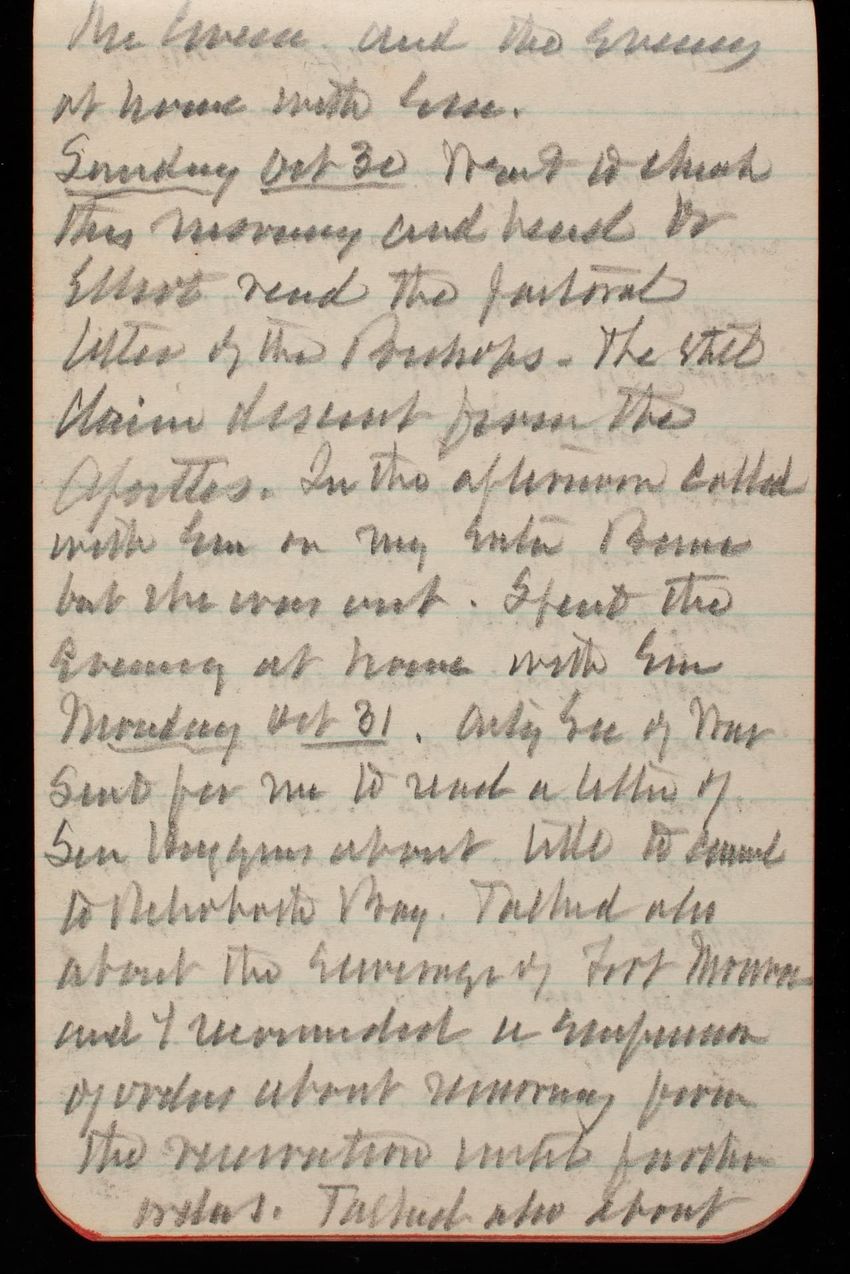 and the evening
at home with Em.
Sunday Oct 30 Went to chuch
this morning and heard Dr
Elliot read the pastoral
letter of the Bishops. The still
claim descent from the
Apostles. In the afternoon called
with Em on my
but she was out. Spent the
Evening at home with Em
Monday Oct 31. Actg Sec of War
Sent for me to read a letter of
Sen Higgins about title to canal
to Rehoboth Bay. Talked also
about the Sewerage of Fort Monroe
and I recommended a suspension
of orders about removing from
the reservation until further
orders. Talked also about